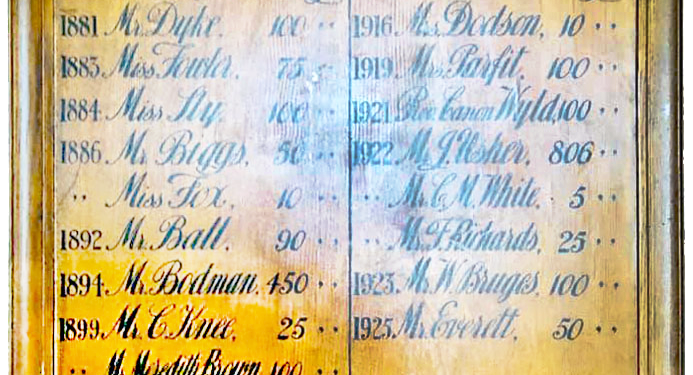 1881 Mr. Dyke. 100 ··
1883 Miss Fowler. 75 ··
1884 Miss Sly. 100 ··
1886 Mr. Biggs. 50 ··
·· Miss Fox. 10 ··
1892 Mr. Ball. 90 ··
1894 Mr. Bodman. 450 ··
1899 Mr. C. Knee. 25 ··
·· Mr. Meredith Brown. 100 ··
1916 Mrs. Dodson. 10 ··
1919 Mrs. Parfit. 100 ··
1921 Rev. Canon Wyld. 100 ··
1922 Mr. J. Usher. 806 ··
·· Mr. C. M. White. 5 ··
·· Mr. F. Richards. 25 ··
1923 Mr. W. Bruges. 100 ··
1925 Mr. Everett. 50 ··